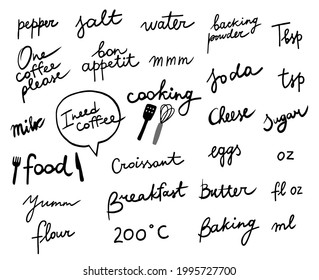 pepper salt water backing powder Tbsp
One coffee please
bon appetit
mmm
soda
tsp
cooking
milk
I need coffee
Cheese
sugar
food
Croissant
eggs
oz
Yumm
Breakfast
Butter
fl oz
flour
200°C
Baking
ml
shutterstock.com · 1995727700